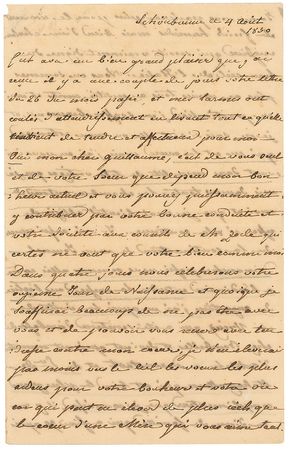 Schönbrunn ce 4 Août
1830
C'est avec un bien grand plaisir que j'ai
reçue il y a une couple de jours votre lettre
du 26 du mois passé et mes larmes ont
coulés d'attendrissement en lisant tout ce qu'elle
contient de tendre et affectueux pour moi
Oui mon cher Guillaume, c'est de vous seul
et de votre Soeur que dépend mon bon
heur actuel et vous pouvez puissamment
y contribuer par votre bonne conduite et
votre docilité aux conseils de Mr Zode qui
certes ne veut que votre bien comme moi
Dans quatre jours nous célébrerons votre
onzieme Jour de Naissance et quoique je
souffrirai beaucoups de ne pas être avec
vous et de pouvoir vous serrer avec ten
dresse contre mon coeur, je n'éleverai
pas moins vers le ciel les voeux les plus
ardens pour votre bonheur et votre vie
car qui peut en élever de plus réels que
le coeur d'une Mère qui vous aime tant.